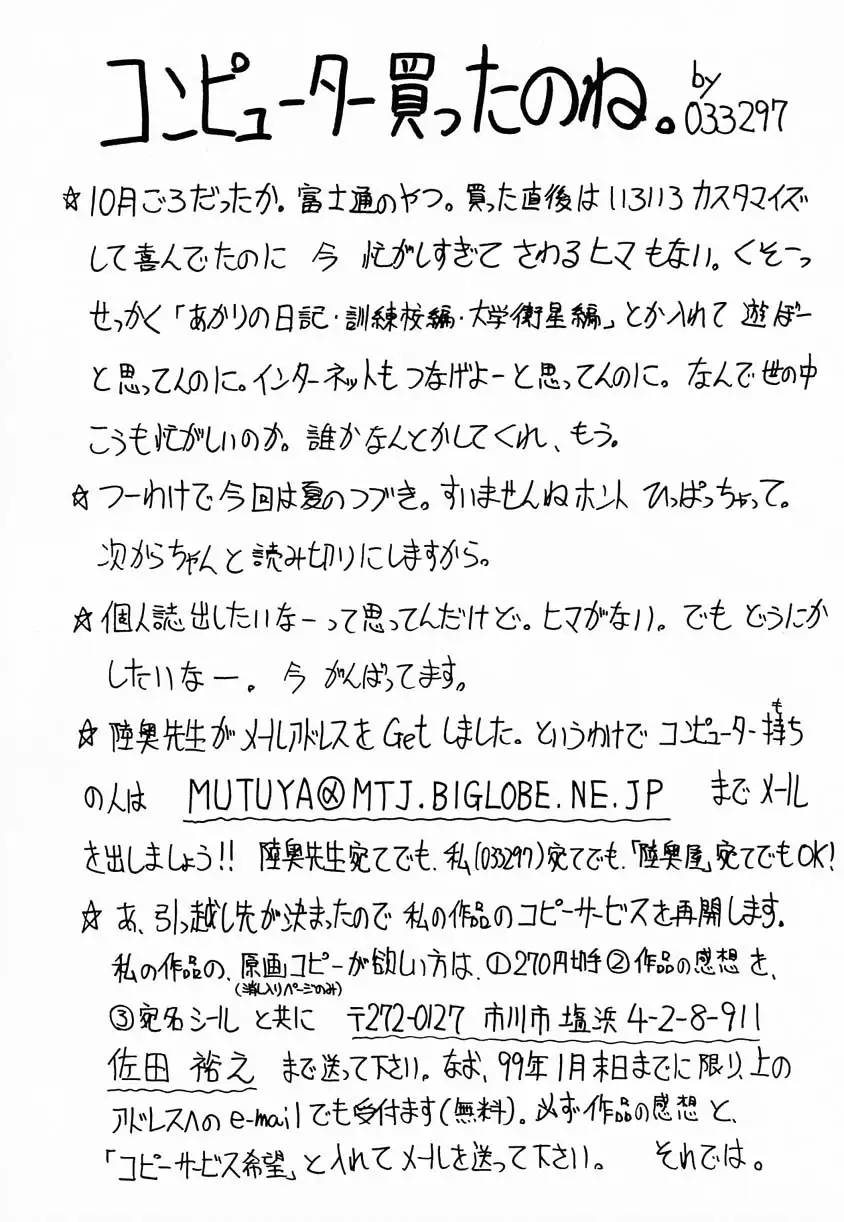 コンピューター買ったのね。by 033297
☆10月ごろだったか。富士通のやつ。買った直後はいろいろカスタマイズ
して喜んでたのに 今 忙がしすぎて さわるヒマもない。くそーっ
せっかく「あかりの日記・訓練校編・大学衛星編」とか入れて 遊ぼー
と思ってんのに。インターネットもつなげよーと思ってんのに。なんで世の中
こうも忙がしいのか。誰かなんとかしてくれ、もう。
☆つーわけで今回は夏のつづき。すいませんねホント ひっぱっちゃって。
次からちゃんと読み切りにしますから。
☆個人誌出したいなーって思ってんだけど。ヒマがない。でも どうにか
したいなー。今 がんばってます。
☆陸奥先生がメールアドレスをGetしました。というわけで コンピューター持ち
の人は MUTUYA@MTJ.BIGLOBE.NE.JP までメール
を出しましょう!! 陸奥先生宛てでも、私(033297)宛てでも、「陸奥屋」宛てでもOK!
☆あ、引っ越し先が決まったので 私の作品のコピーサービスを再開します。
私の作品の、原画コピーが欲しい方は、①270円切手②作品の感想を、
(消し入りページのみ)
③宛名シール と共に 〒272-0127 市川市塩浜4-2-8-911
佐田 裕之 まで送って下さい。なお、99年1月末日までに限り、上の
アドレスへのe-mailでも受付ます(無料)。必ず作品の感想と、
「コピーサービス希望」と入れてメールを送って下さい。 それでは。